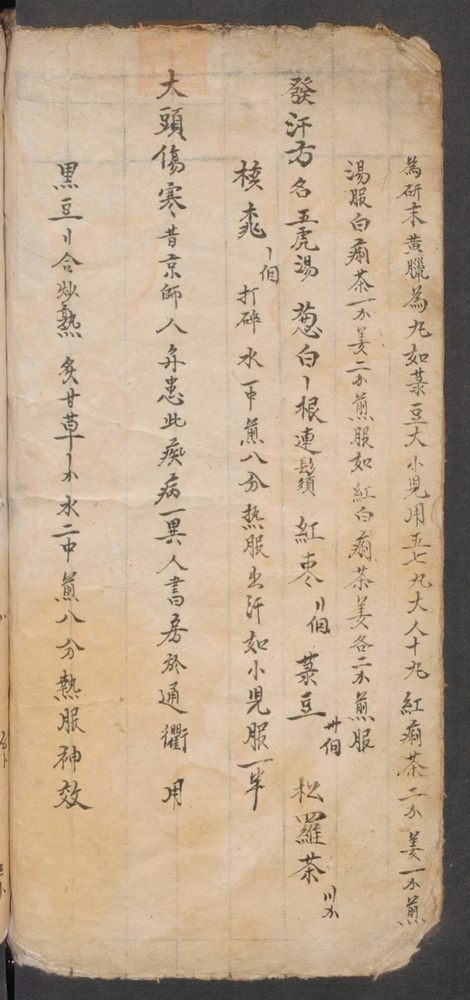 為研末黄臘為九如菉豆大小児用五七九大人十九 紅痢茶二分 姜一分煎
湯服白痢茶一分姜二分煎服如紅白痢茶姜各二分煎服
發汗方 名五虎湯 葱白〡根連鬚須 紅枣〢個 菉豆卅個 松羅茶〣分
核桃〡個 打碎 水一中煎八分热服出汗如小児服一半
大頭傷寒 昔京師人弁患此痪病一異人書方於通衢 用
黑豆〢合炒熟 炙甘草〡分 水二中煎八分熱服神效